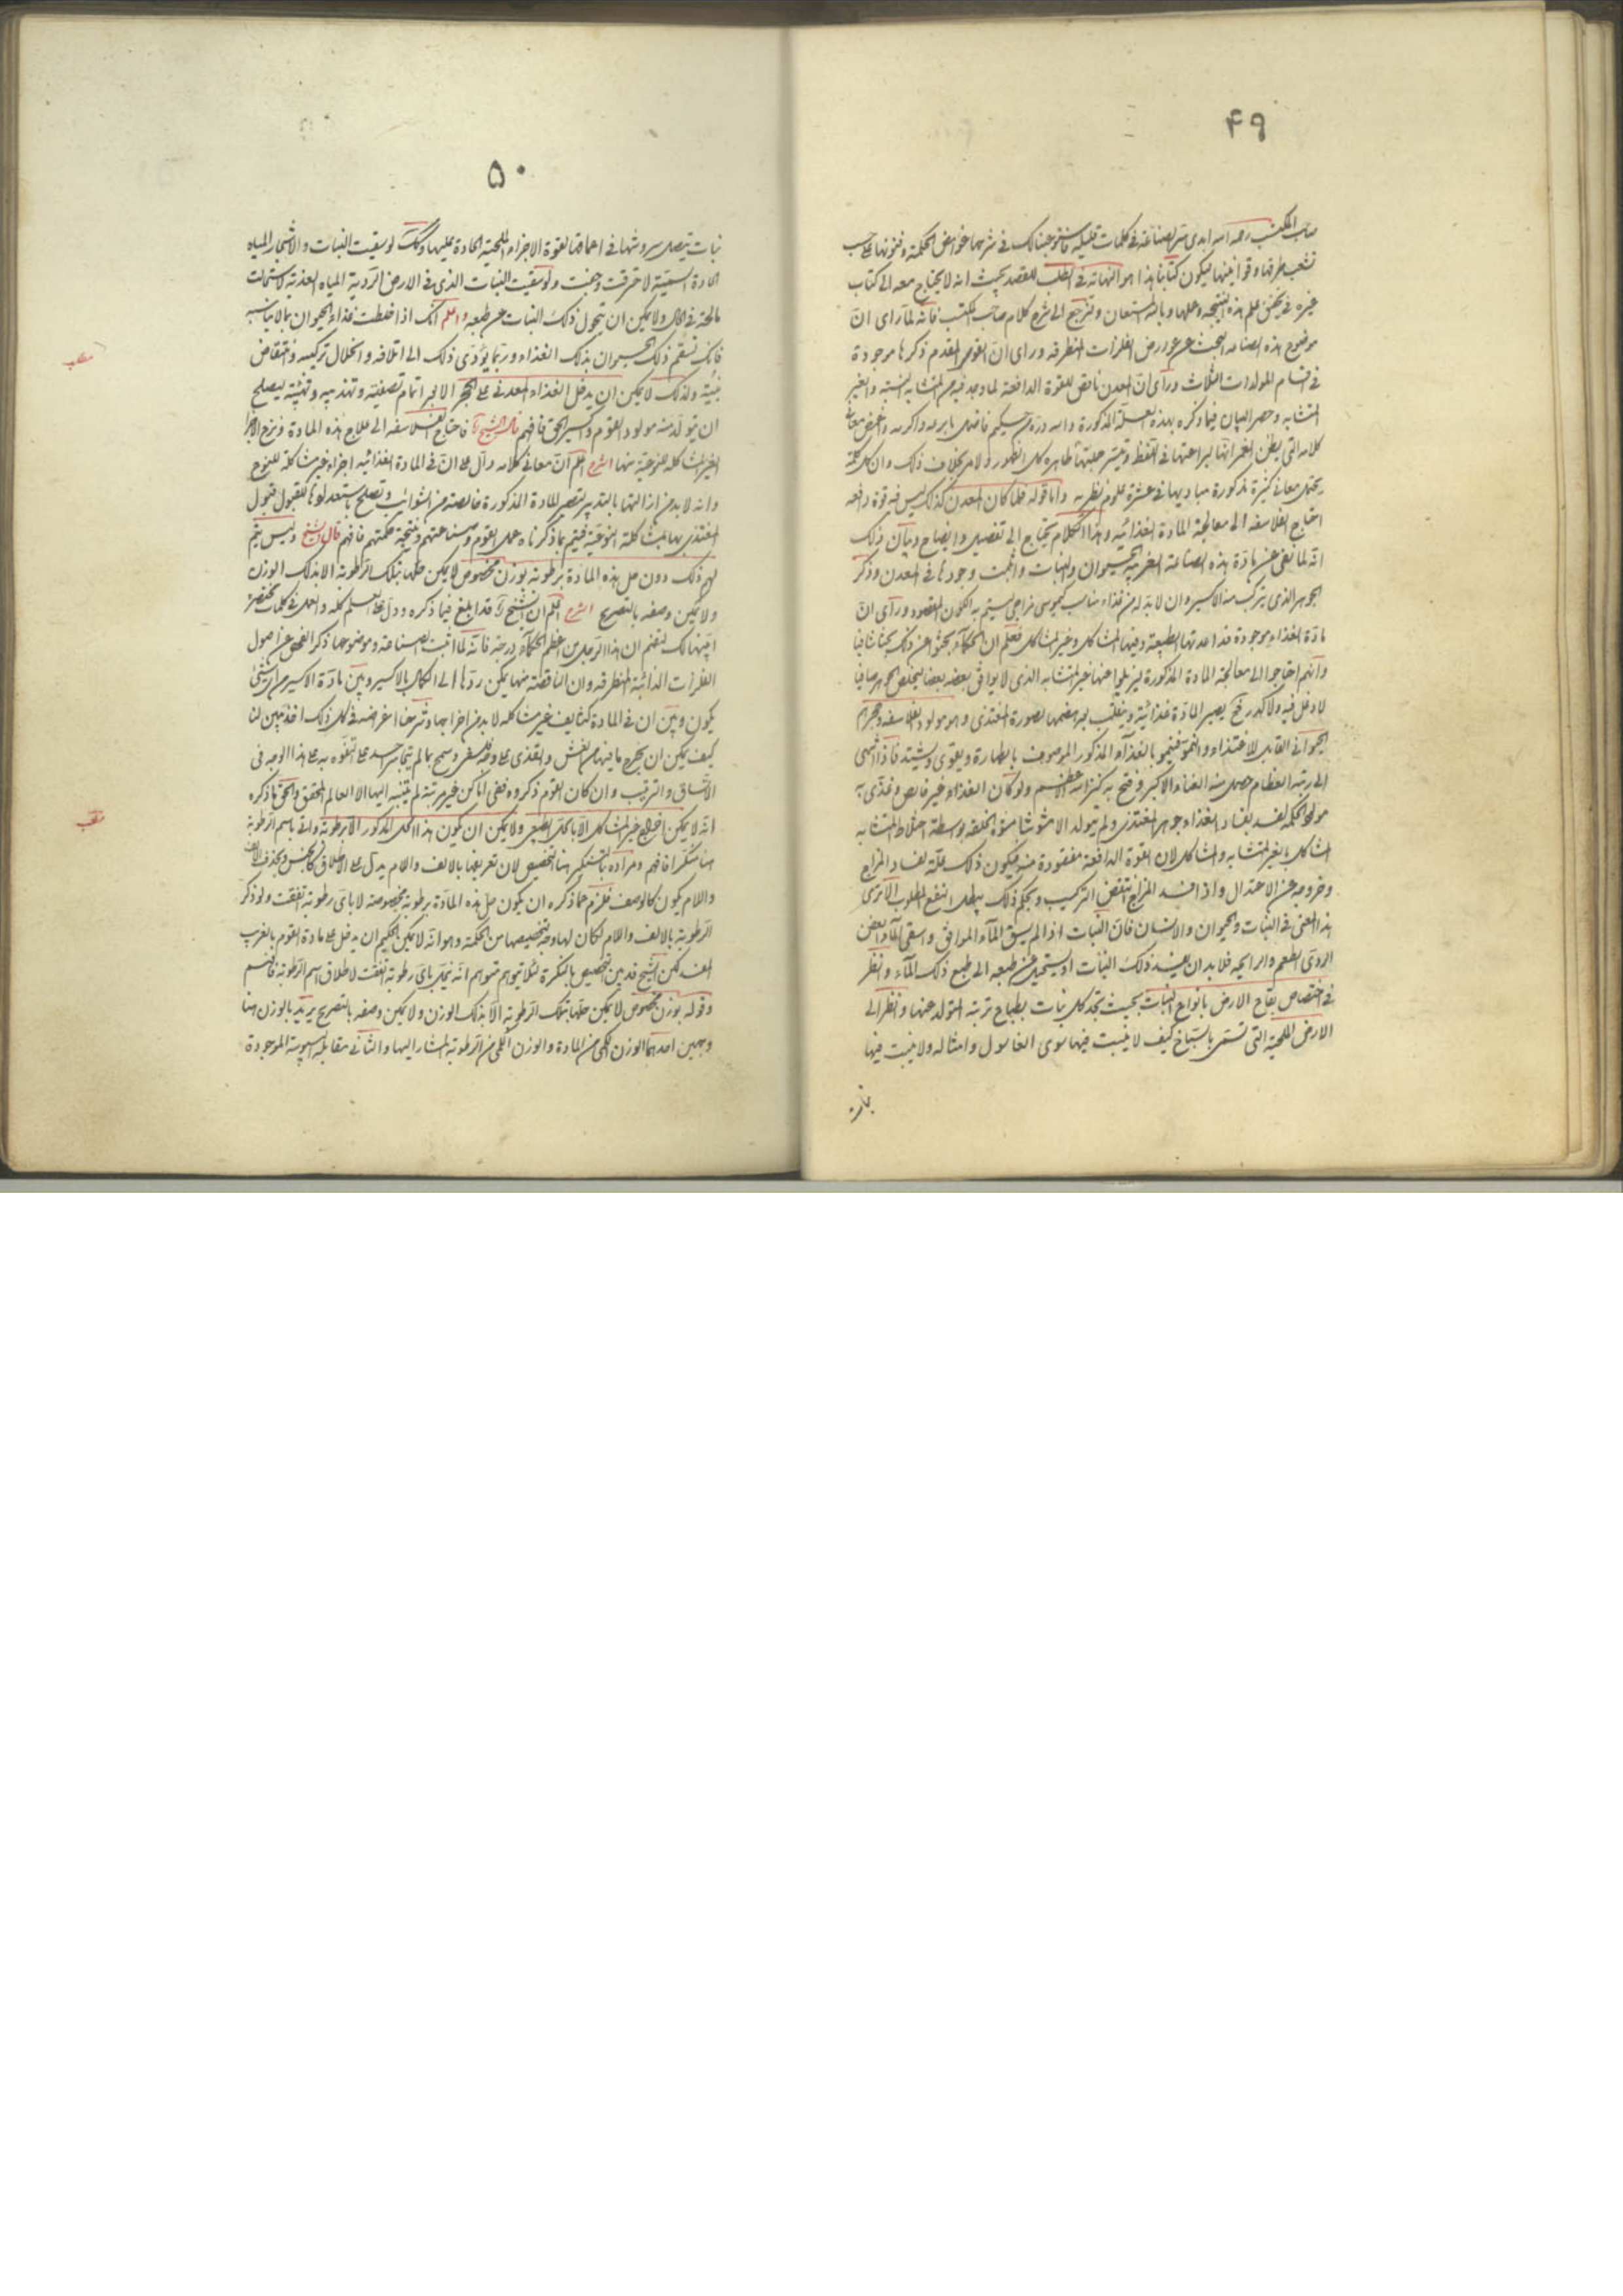 ۴۹
صاحب المكتسب رحمه الله ابدى سر الصناعة فى كلمات قليلة فى شرحها غوامض الحكمة وفنونها على حسب
تشعب طرقها وقوانينها ليكون كتابنا هذا هو النهاية فى الطلب للقصد بحيث انه لا يحتاج معه الى كتاب
غيره فى علم هذه النتيجة وعملها وبالله المستعان ولنرجع الى شرح كلام صاحب المكتسب فانه لما رأى ان
موضوع هذه الصناعة البحث عن عوارض الفلزات المنطرقة ورأى ان القوى المقدم ذكرها موجودة
فى اقسام المولدات الثلاث ورأى ان المعدن ناقص للقوة الدافعة لما وجد فيه من المتشابه بالنسبة والغير
المتشابه وحصر البيان فيما ذكره بهذه العلة المذكورة ولله دره من حكيم فاضل
كلامه التى يظن الغمر انها لبراعتها فى اللفظ ظاهره كل الظهور والامر بخلاف ذلك وان كل كلمة
تحتمل معانى كثيرة مذكورة مباديها فى عشرة علوم نظرية واما قوله فلما كان المعدن كذلك ليس فيه قوة دافعة
احتاج الفلاسفة الى معالجة المادة الغذائية وهذا الكلام يحتاج الى تفصيل وايضاح وبيان ذلك
انه لما نفى عن مادة هذه الصناعة الغريبة الحيوان والنبات واثبت وجودها فى المعدن وذكر
الجوهر الذى يتركب منه الاكسير وان لا بد له من غذاء مناسب كيموسى مزاجى يستتم به الكون المقصود ورأى ان
مادة الغذاء موجودة قد اعدتها الطبيعة وفيها المشاكل وغير المشاكل فعلم ان الحكماء بحثوا عن ذلك بحثا شافيا
وانهم احتاجوا الى معالجة المادة المذكورة ليزيلوا عنها غير المتشابه الذى لا يوافق بعضه بعضا ليخلص الجوهر صافيا
لا دغل فيه ولا كدر فح يصير المادة غذائية وينقلب بهضمها بصورة المغتذى وهو مولود الفلاسفة وحجرهم
الحيوانى القابل للاغتذاء والنمو فينمو بالغذاء المذكور الموصوف بالطهارة ويقوى ويشتد فاذا انتهى
الى رتبة العظام حصل منه الغناء الاكبر وفتح به كنز الله الاعظم ولو كان الغذاء غير خالص وغذى به
مولود الحكمة لفسد بفساد الغذاء جوهر المغتذى ولم يتولد الا مشوشا مشوه الخلقة بواسطة اختلاط المتشابه
المشاكل بغير المتشابه والمشاكل لان القوة الدافعة مفقودة منه فيكون ذلك علة لفساد المزاج
وخروجه عن الاعتدال واذا فسد المزاج انتقض التركيب وبحكم ذلك يبطل النفع المطلوب الا ترى
هذا المعنى فى النبات والحيوان والانسان فان النبات اذا لم يسق الماء الموافق وسقى الماء العفن
الردى الطعم والرايحة فلا بد ان يفسد ذلك النبات او يستحيل عن طبعه الى طبع ذلك الماء وانظر
فى اختصاص بقاع الارض بانواع النبات بحيث تجد كل نبات بطباع تربة المتولد عنها وانظر الى
الارض الملحية التى تسمى بالسباخ كيف لا ينبت فيها سوى الغاسول وامثاله ولا ينبت فيها
نبات
۵۰
نبات يتصل سروشها فى اعماقها لقوة الاجزاء الملحية الحادة عليها وكذلك لو سقيت النبات والاشجار المياه
الحادة السقية لاحترقت وجفت ولو سقيت النبات الذى فى الارض الردية المياه العذبة لاستحالت
مالحة فى الحال ولا يمكن ان يتحول ذلك النبات عن طبعه واعلم انك اذا خلطت غذاء الحيوان بما لا يناسبه
فانك تسقم ذلك الحيوان بذلك الغذاء وربما يؤدى ذلك الى اتلافه وانحلال تركيبه وانتقاض
بنيته ولذلك لا يمكن ان يدخل الغذاء المعدنى على الحجر الا بعد اتمام تصفيته وتهذيبه وتهيئته ليصلح
ان يتولد منه مولود القوم واكسير الحق فافهم قال الشيخ فاحتاج الفلاسفة الى علاج هذه المادة ونزع الاجزاء
الغير المشاكلة للنوعية منها الشرح اعلم ان معانى كلامه دال على ان فى المادة الغذائية اجزاء غير مشاكلة للنوع
وانه لا بد من ازالتها بالتدبير لتصير المادة المذكورة خالصة من الشوائب وتصلح باستعدادها للقبول قبول
المغتذى بها بمشاكلة النوعية فيتم بما ذكرناه عمل القوم وصناعتهم ونتيجة حكمتهم فافهم قال الشيخ وليس يتم
لهم ذلك دون حل هذه المادة برطوبة بوزن مخصوص لا يمكن حلها بتلك الرطوبة الا بذلك الوزن
ولا يمكن وصفه بالتصريح الشرح اعلم ان الشيخ قد ابلغ فيما ذكره ودل على العلم كله والعمل فى كلمات مختصرة
لتفهم ان هذا الرجل من اعظم الحكماء درجة فانه لما اثبت الصناعة وموضوعها ذكر الفحص عن اصول
الفلزات الذائبة المنطرقة وان الناقصة منها يمكن ردها الى الكمال بالاكسير وبين مادة الاكسير من اى شئ
يكون وبين ان فى المادة كثايف غير مشاكلة لا بد من اخراجها وشرحنا اغراضه فى كل ذلك
كيف يمكن ان يخرج ما فيها من الغش والقذى على وجه فلسفى وسمح بما لم يتجاسر احد على التفوه به على هذا الوجه فى
الاتساق والترتيب وان كان القوم ذكروه ففى اماكن غير مرتبة لم يتنبه اليها الا العالم المحقق والحق ما ذكره
انه لا يمكن اخراج غير المشاكل الا بالحل الطبيعى ولا يمكن ان يكون هذا الحل المذكور الا برطوبة واتى باسم الرطوبة
هنا منكرا فافهم ومراده بالتنكير هنا التخصيص لان تعريفها بالالف واللام يدل على الاطلاق كالجنس وبحذف الالف
واللام يكون كالوصف فلزم مما ذكره ان يكون حل هذه المادة برطوبة مخصوصة لا باى رطوبة اتفقت ولو ذكر
الرطوبة بالالف واللام لكان لها وجه تخصيصها من الحكمة وهو انه لا يمكن الحكيم ان يدخل على مادة القوم بالغريب
لكن الشيخ قد بين التخصيص بالنكرة لئلا يتوهم متوهم انه ينحل باى رطوبة اتفقت لاطلاق اسم الرطوبة فافهم
وقوله بوزن مخصوص لا يمكن حلها بتلك الرطوبة الا بذلك الوزن ولا يمكن وصفه بالتصريح يريد بالوزن هنا
وجهين احدهما الوزن الكمى من المادة والوزن الكمى من الرطوبة المشار اليها والثانى مقابلة اليبوسة الموجودة
مطلب
مطلب